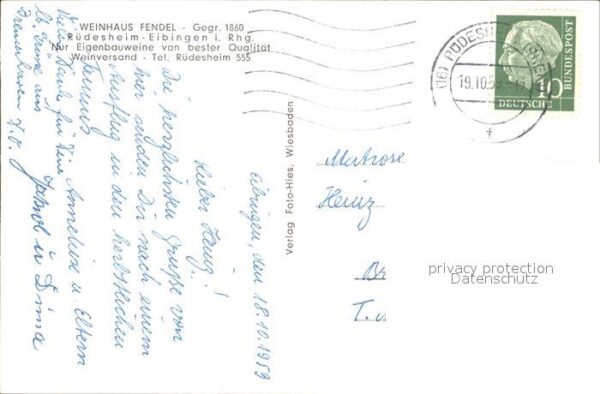 WEINHAUS FENDEL - Gegr. 1860
Rüdesheim-Eibingen i. Rhg.
Nur Eigenbauweine von bester Qualität
Weinversand - Tel. Rüdesheim 555
Eibingen, den 18.10.1959
Lieber Heinz!
Die herzlichsten Grüße von
hier senden Dir nach einem
Ausflug in den herbstlichen
Taunus
Anneliese u. Eltern
Viele
aus
Verlag Foto-Hies, Wiesbaden
(16) RÜDESH
19.10.59
f
10
DEUTSCHE
BUNDESPOST
Matrose
Heinz
Br
privacy protection
Datenschutz